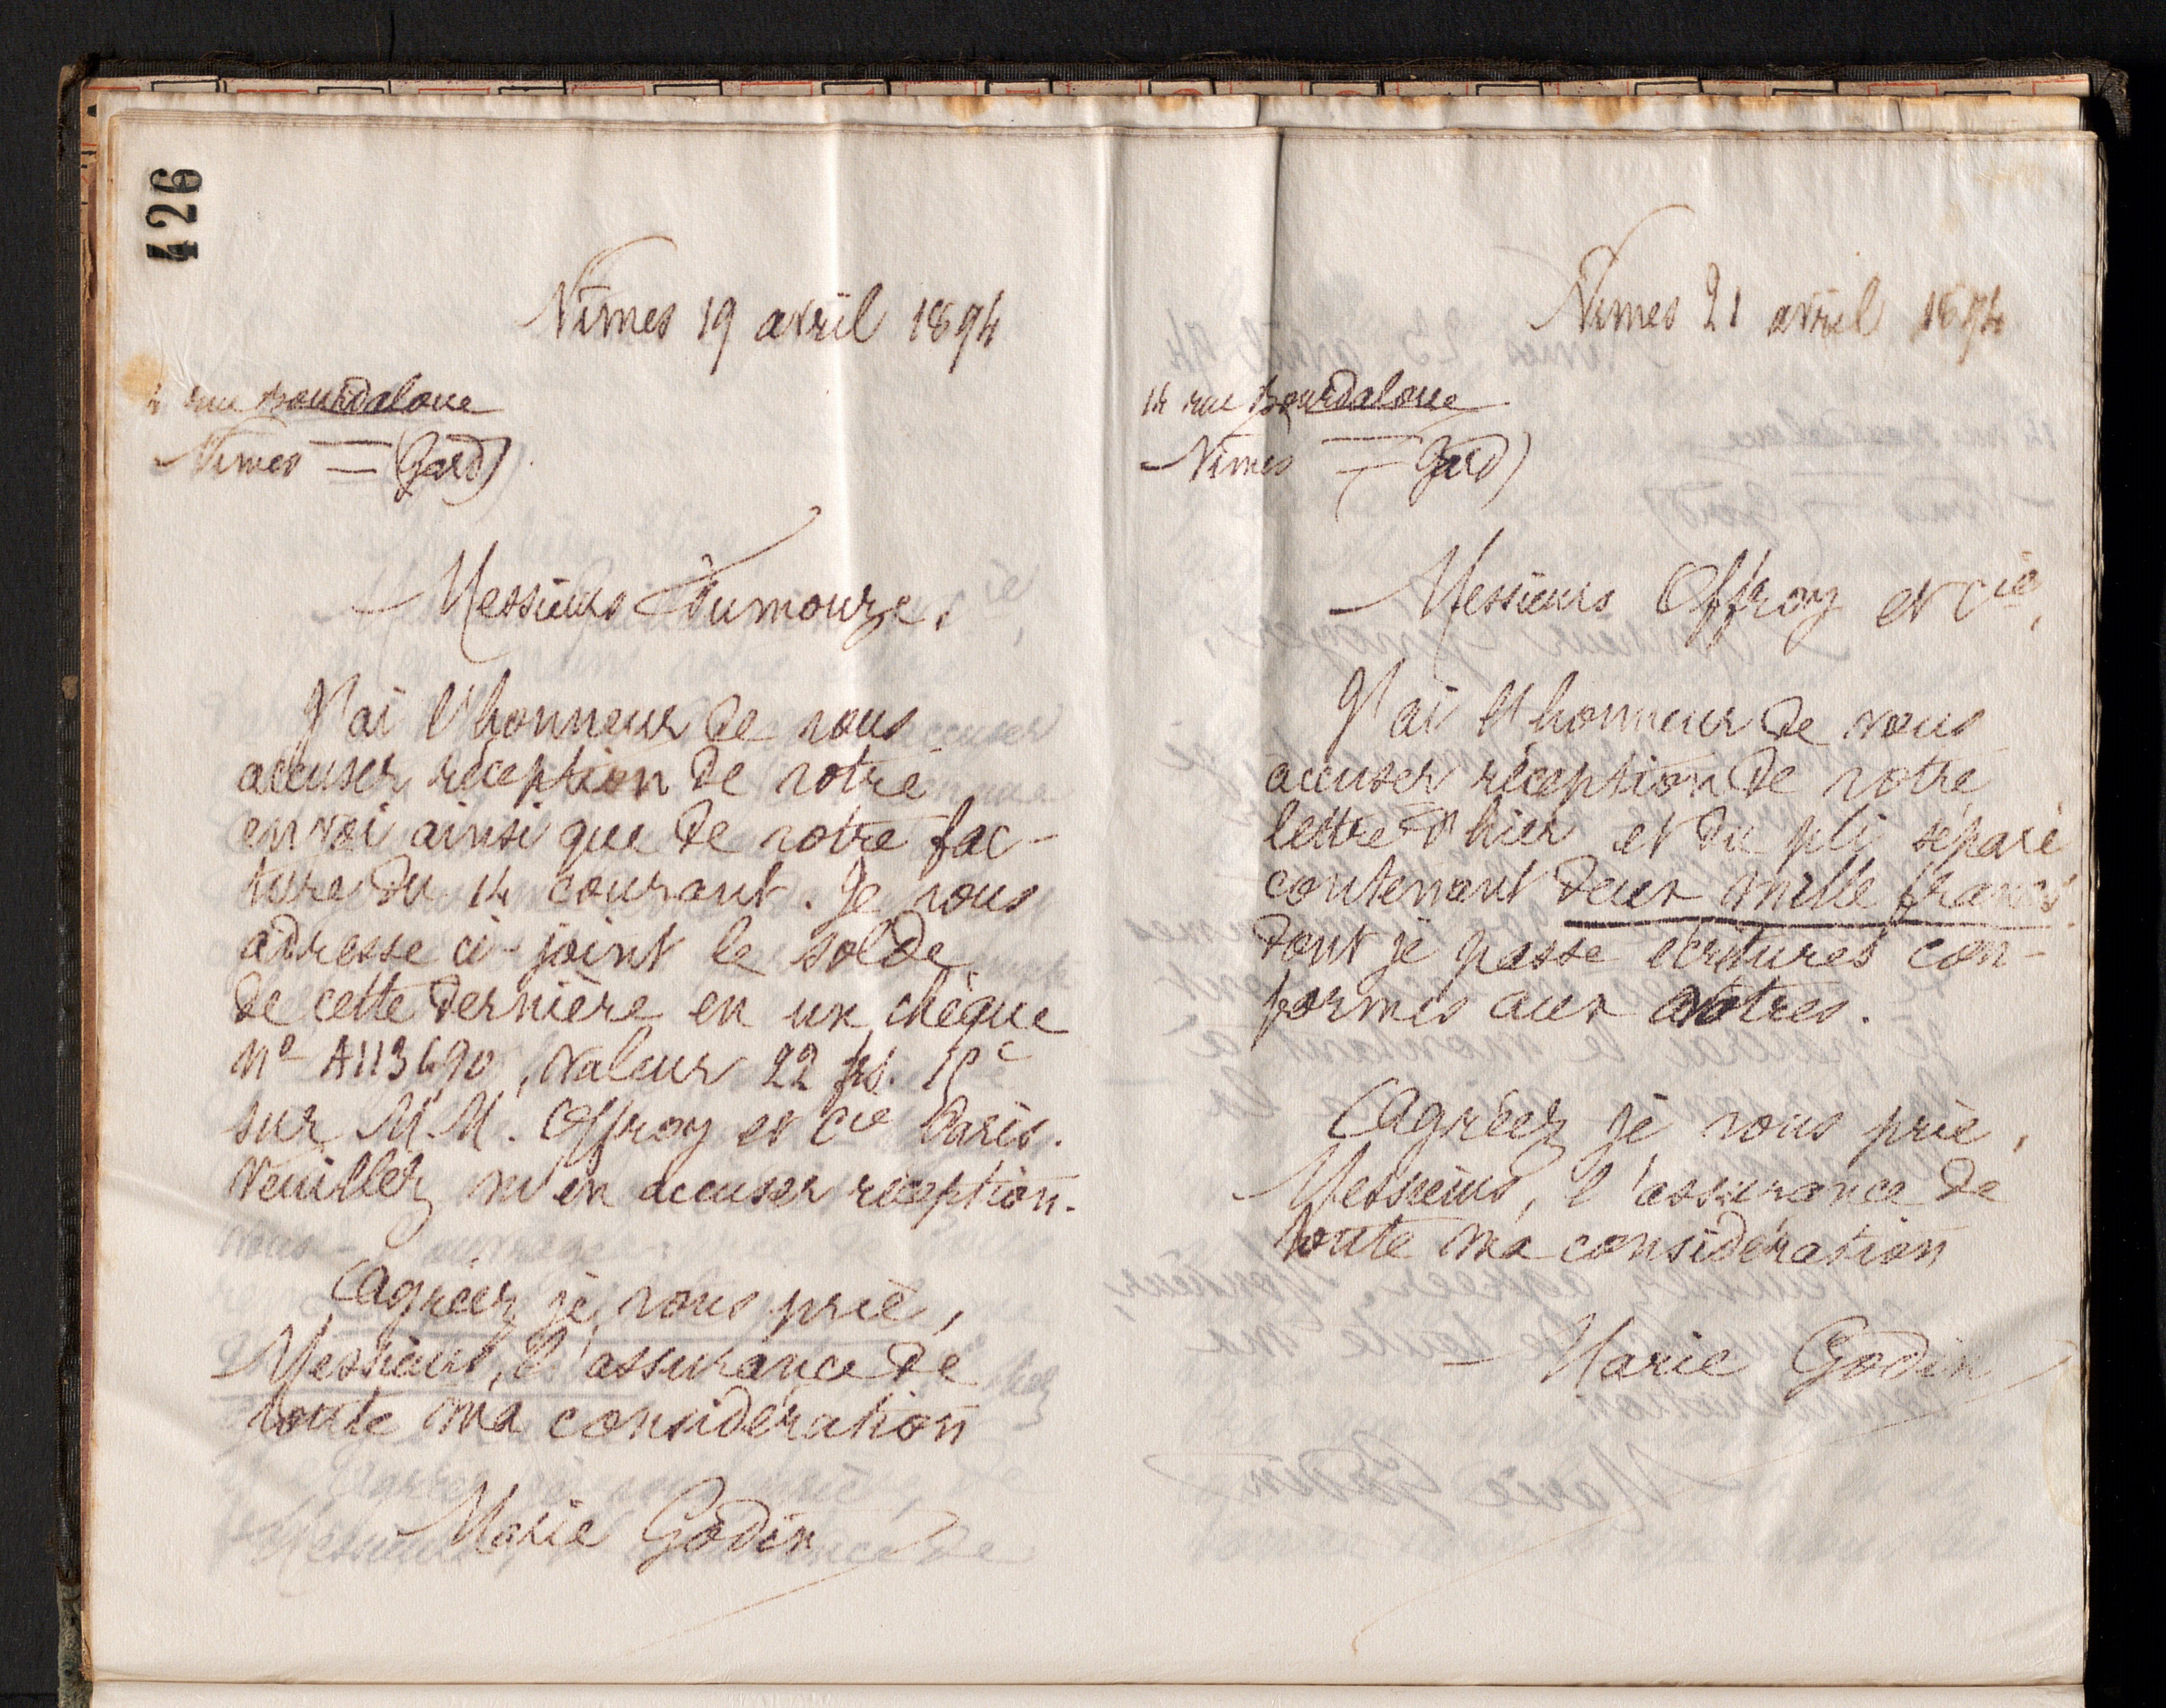 426
Nîmes 19 avril 1894
14 rue Bourdaloue
Nîmes = (Gard)
Messieurs Fumouze,
J'ai l'honneur de vous
accuser réception de votre
envoi ainsi que de votre fac-
ture du 14 courant. Je vous
adresse ci-joint le solde
de cette dernière en un chèque
n° A113490, valeur 22 frs.
sur M.M. Offroy et Cie Paris.
Veuillez m'en accuser réception.
Agréez je vous prie,
Messieurs, l'assurance de
toute ma considération
Marie Godin
Nîmes 21 avril 1894
14 rue Bourdaloue
Nîmes = (Gard)
Messieurs Offroy et Cie,
J'ai l'honneur de vous
accuser réception de votre
lettre d'hier et du pli séparé
contenant deux mille francs
dont je passe écritures con-
formes aux vôtres.
Agréez je vous prie,
Messieurs, l'assurance de
toute ma considération
Marie Godin